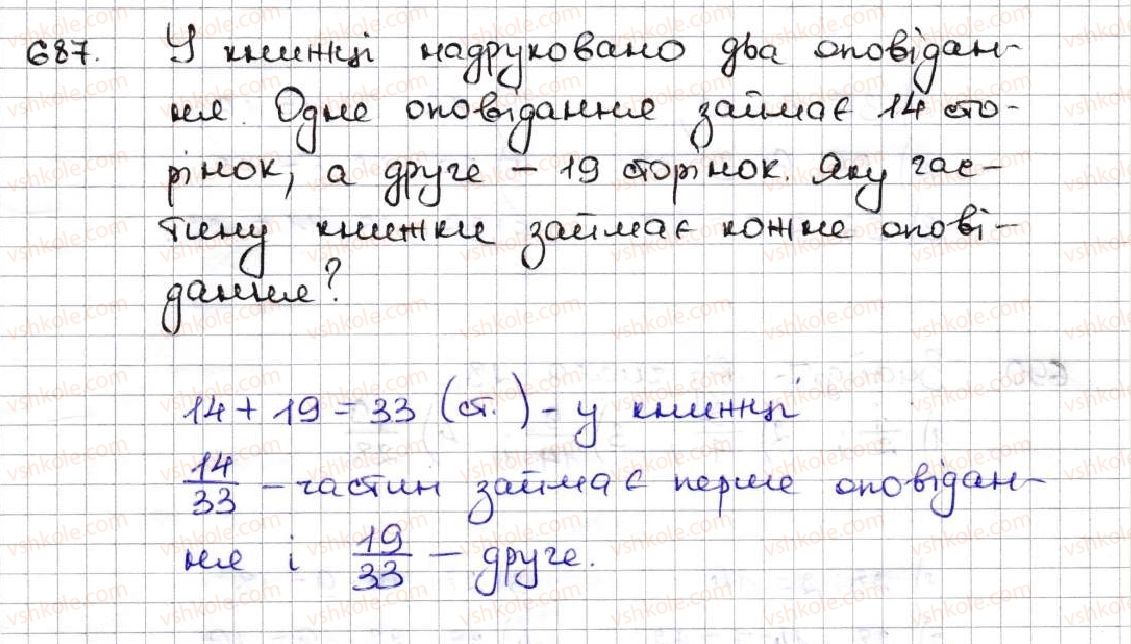 687. У книжці надруковано два оповідан-
ня. Одне оповідання займає 14 сто-
рінок, а друге – 19 сторінок. Яку час-
тину книжки займає кожне опові-
дання?
14 + 19 = 33 (ст.) – у книжці
14/33 – частин займає перше оповідан-
ня і 19/33 – друге.
vshkole.com